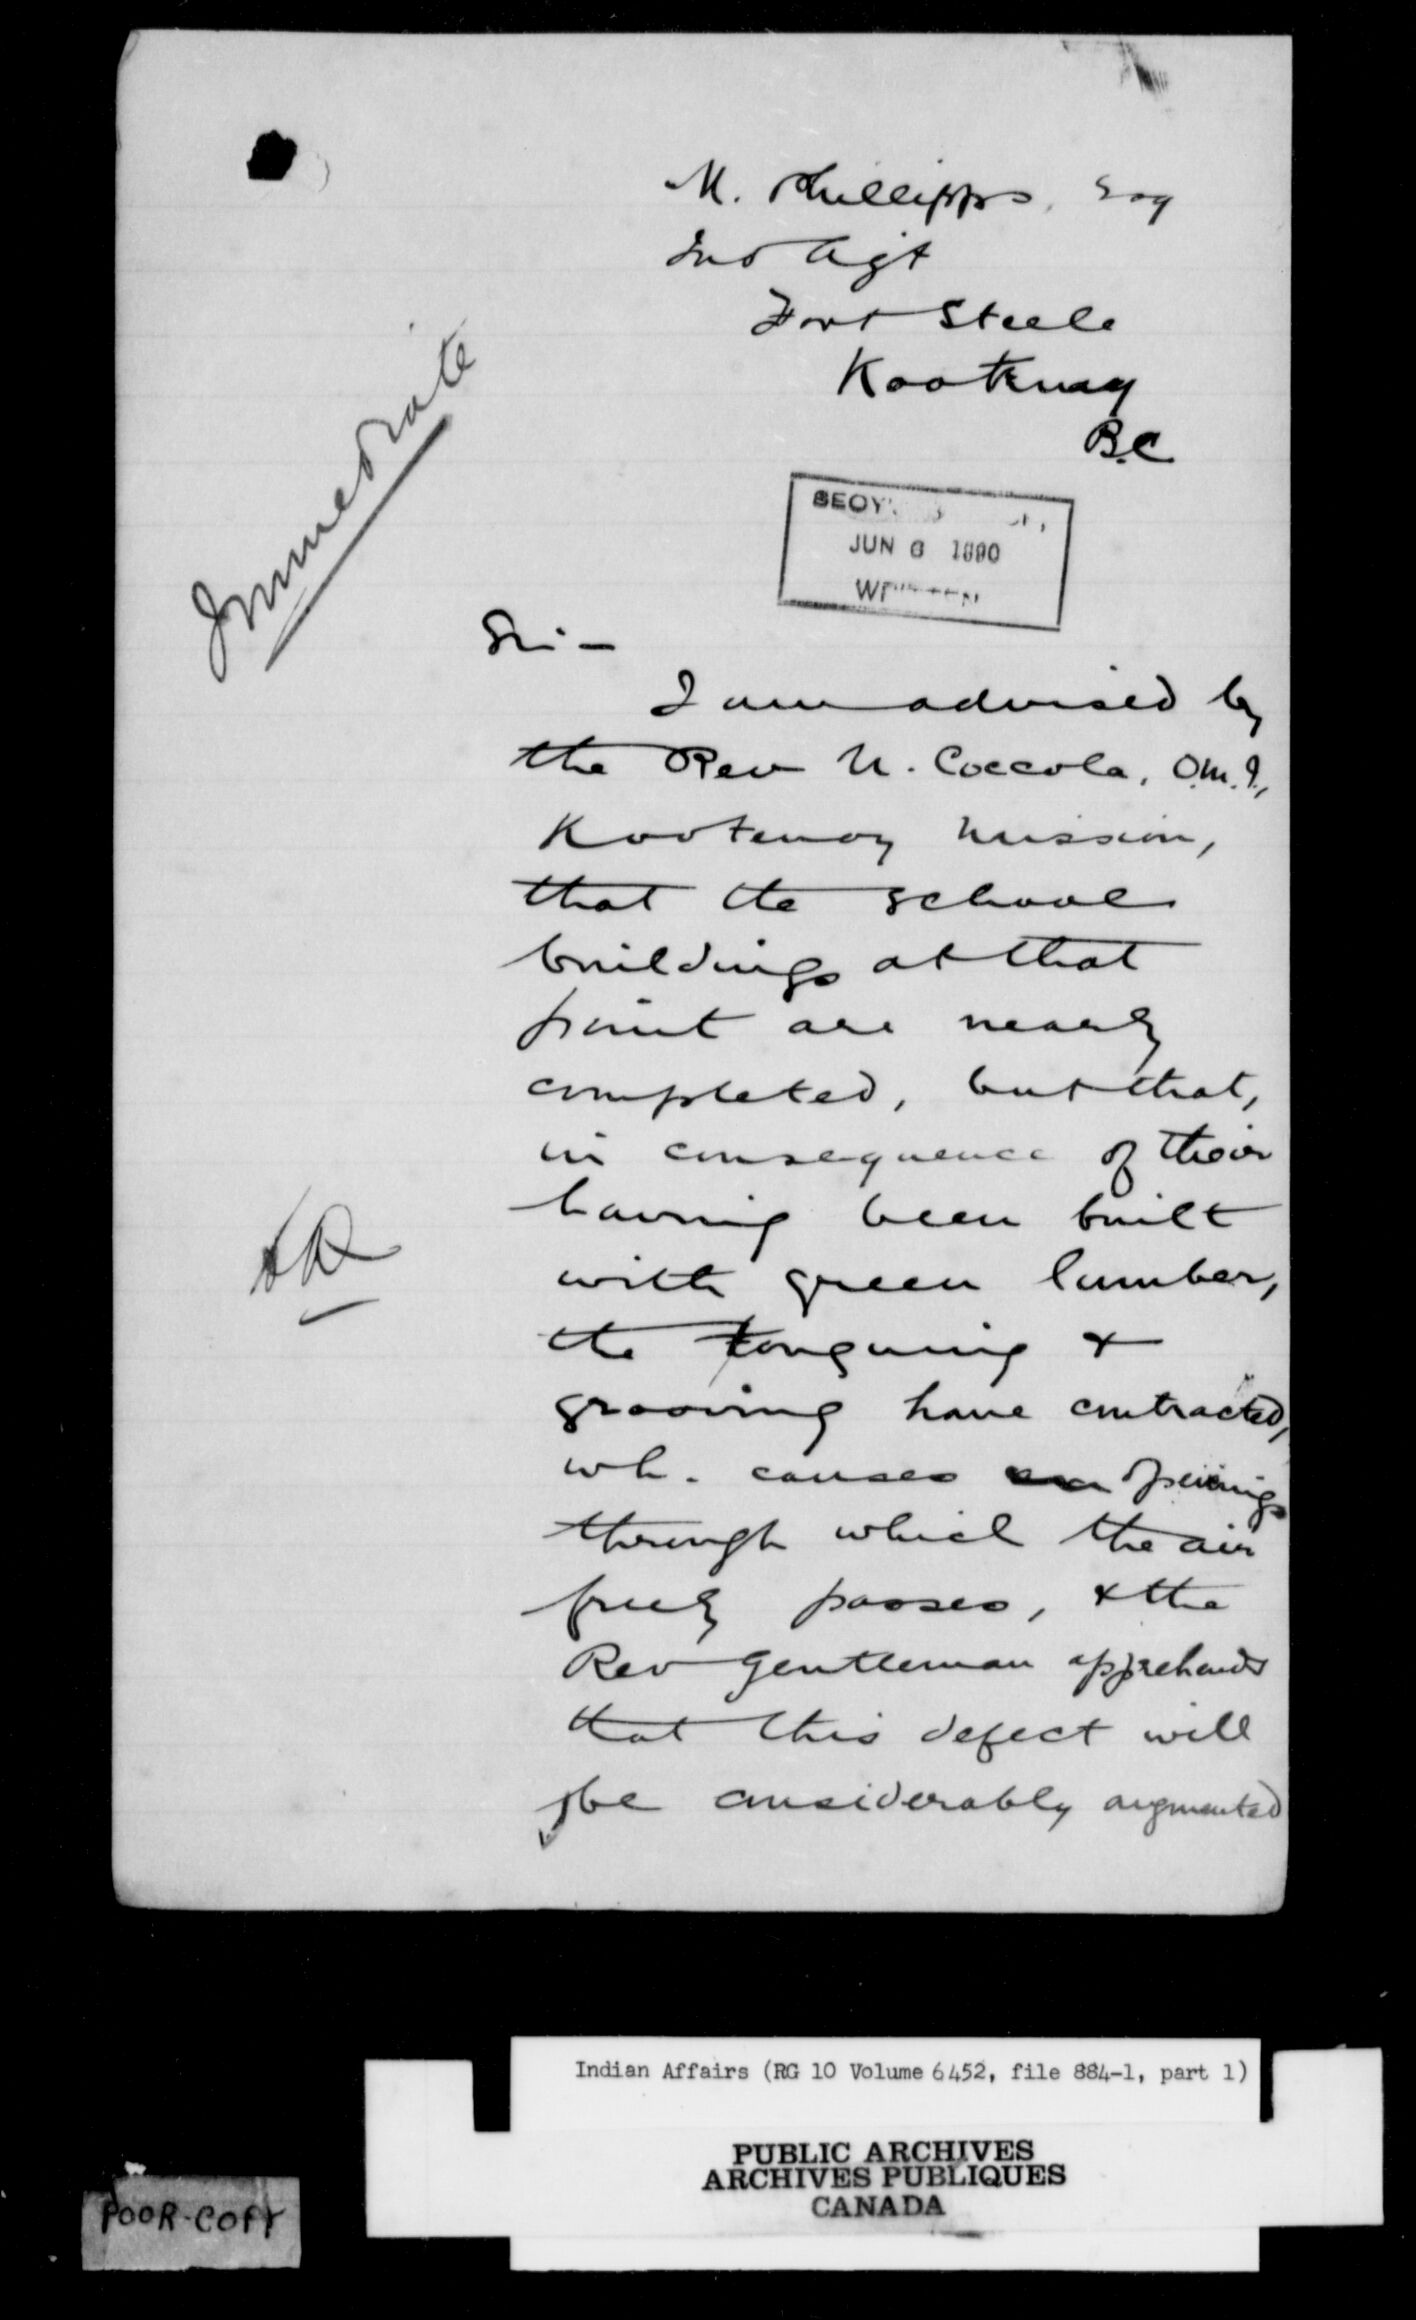 M. Phillipps, Esq
Ind Agt
Fort Steele
Kootenay
B.C
Immediate
JUN 6 1890
Sir –
I am advised by
the Rev N. Coccola, O.M.I.,
Kootenay Mission,
that the school
buildings at that
point are nearly
completed, but that,
in consequence of their
having been built
with green lumber,
the tonguing &
grooving have contracted,
wh. causes openings
through which the air
freely passes, & the
Rev Gentleman apprehends
that this defect will
be considerably augmented
Indian Affairs (RG 10 Volume 6452, file 884-1, part 1)
PUBLIC ARCHIVES
ARCHIVES PUBLIQUES
CANADA
POOR-COPY